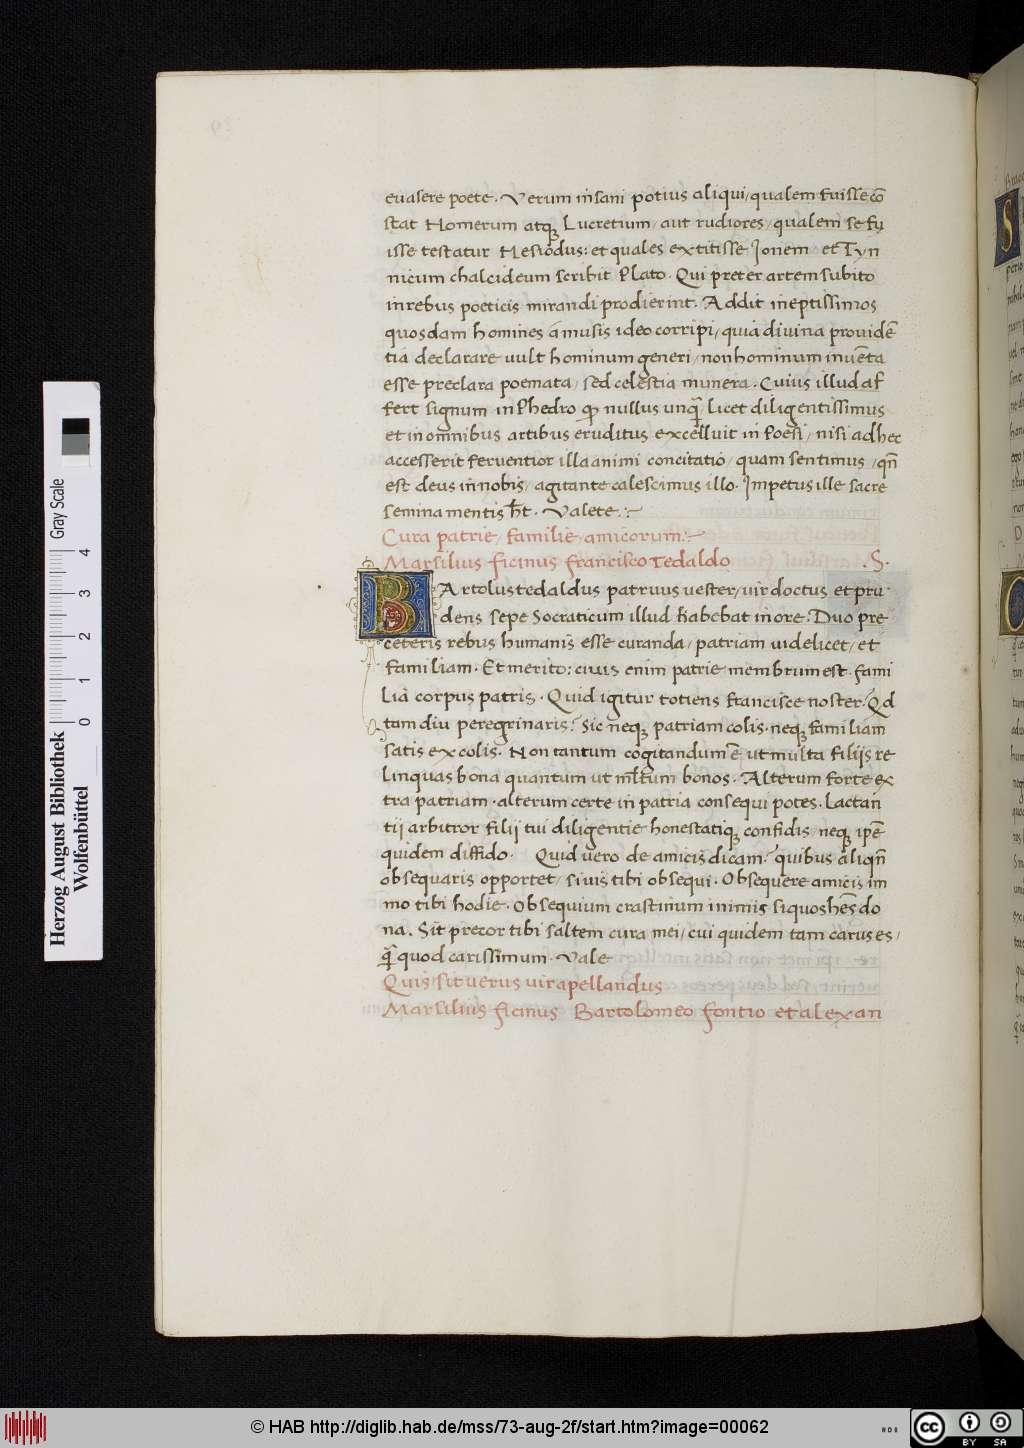 euasere poete. Verum insani potius aliqui, qualem fuisse cō
stat Homerum atq; Lucretium, aut rudiores, qualem se fu
isse testatur Hesiodus: et quales extitisse Ionem et Tyn
nicum chalcideum scribit Plato. Qui preter artem subito
in rebus poeticis mirandi prodierint. Addit ineptissimos
quosdam homines a musis ideo corripi, quia diuina prouidē
tia declarare uult hominum generi, non hominum inuēta
esse preclara poemata, sed celestia munera. Cuius illud af
fert signum in Phedro qp nullus unq̄ licet diligentissimus
et in omnibus artibus eruditus excelluit in Poesi, nisi ad hec
accesserit feruentior illa animi concitatio, quam sentimus, qn̄
est deus in nobis, agitante calescimus illo. Impetus ille sacre
semina mentis h̄t. Valete.
Cura patrie, familie, amicorum.
Marsilius ficinus francisco Tedaldo .S.
BArtolus tedaldus patruus uester, uir doctus et pru
dens sepe Socraticum illud habebat in ore: Duo pre
ceteris rebus humanis esse curanda, patriam uidelicet, et
familiam. Et merito: ciuis enim patrie membrum est. fami
lia corpus patris. Quid igitur totiens francisce noster? Qd
tam diu peregrinaris? Sic neq; patriam colis. neq; familiam
satis excolis. Non tantum cogitandum ē ut multa filijs re
linquas bona quantum ut ml̄tum bonos. Alterum forte ex
tra patriam. alterum certe in patria consequi potes. Lactan
tij arbitror filij tui diligentie honestatiq; confidis, neq; ip̄e
quidem diffido. Quid uero de amicis dicam? quibus aliqn̄
obsequaris opportet, si uis tibi obsequi. Obsequere amicis im
mo tibi hodie. Obsequium crastinum inimis siquos hēs do
na. Sit precor tibi saltem cura mei, cui quidem tam carus es,
q̄ quod carissimum. Vale
Quis sit uerus uir apellandus
Marsilius ficinus Bartolomeo fontio et alexan
Herzog August Bibliothek
Wolfenbüttel
Gray Scale
0 1 2 3 4
© HAB http://diglib.hab.de/mss/73-aug-2f/start.htm?image=00062
cc BY SA